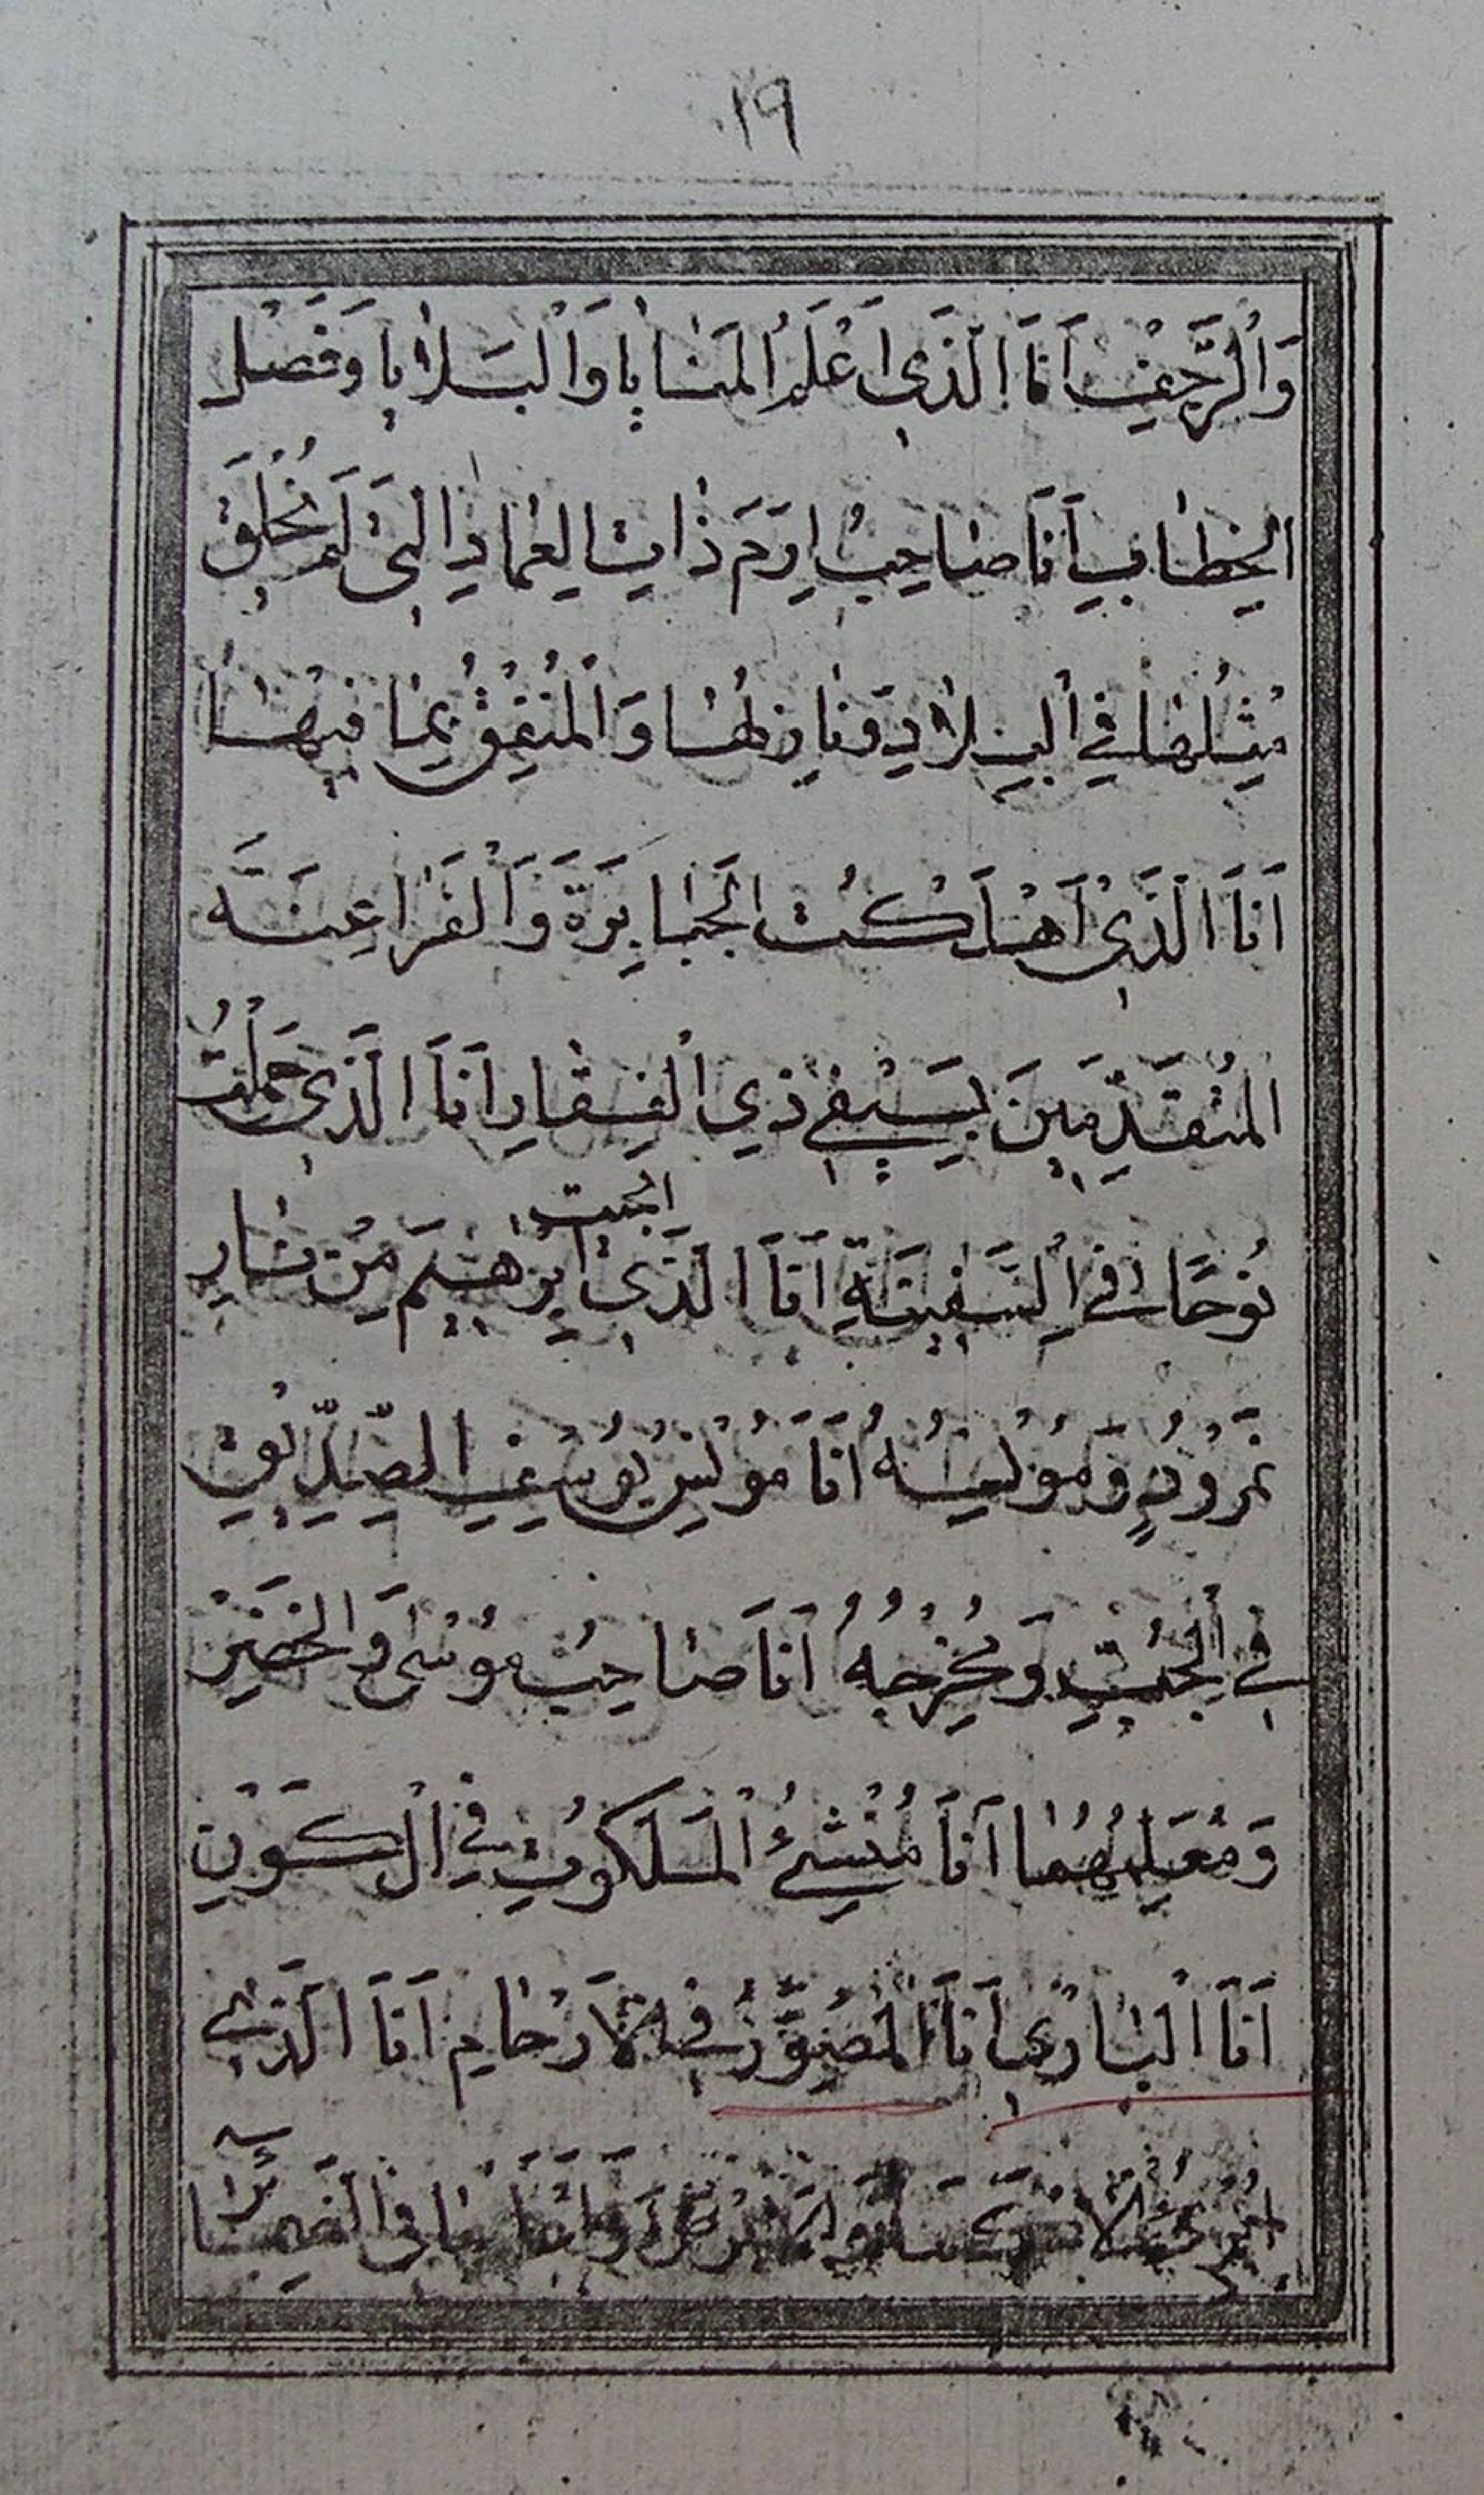 ١٩
وَالْرَّجْفِ اَنَا الَّذَى اَعْلَمُ الْمَنٰايٰا وَاْلبَلاٰيٰا وَفَصْلَ
اْلخِطٰابِ اَنَا صٰاحِبُ اِرَمَ ذٰاتِ الْعِمٰادِ الَّتى لَمْ يُخْلَقْ
مِثْلُهٰا فِي اْلبِلاٰدِ وَنٰازِلُهٰا وَاْلمُنْفِقُ بِمٰا فيهٰا
اَنَا الَّذَى اَهْلَكْتُ الْجَبٰابِرَةَ وَالْفَرٰاعِنَةَ
الْمُتَقَدِّمينَ بِسَيْفى ذِي الْفِقٰارِ اَنَا الَّذَى حَمَلْتُ
اَنجَيتُ
نُوحًا فِي السَّفينَةِ اَنَا الَّذَى اِبْرٰهيمَ مِنْ نٰارِ
نَمْرُودٍ وَمُوْنِسُهُ اَنَا مُوْنِسُ يُوسُفِ الصِّدّيقِ
فى اْلجُبِّ وَمُخْرِجُهُ اَنَا صٰاحِبُ مُوْسٰى وَالْخَضِرْ
وَمُعَلِّمُهُمٰا اَنَا مُنْشِئُ الْمَلَكُوتِ فِي الْكَوْنِ
اَنَا اْلبٰارِىُ اَنَا الْمُصَوِّرُ فى اْلاَرْحٰامِ اَنَا الَّذى
اُبْرِئُ اْلاَكْمَهَ وَاْلاَبْرَصَ وَاَعْلَمُ مٰا فى الضَّمٰآئِرِ